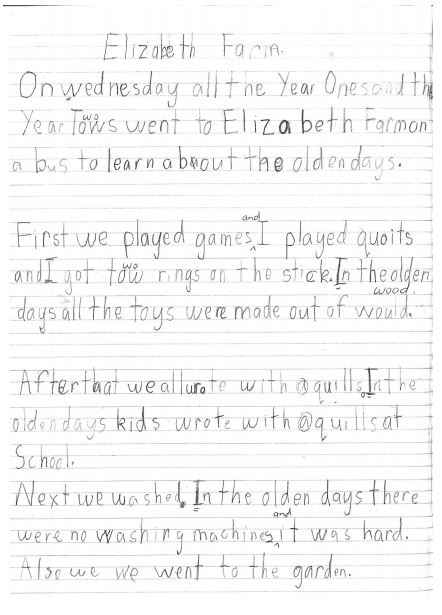 Elizabeth Farm.
On wednesday all the Year Ones and the
Year Tows wo went to Elizabeth Farm on
a bus to learn about the olden days.
First we played games, and I played quoits
and I got tow wo rings on the stick. In the olden
days all the toys were made out of would. wood
After that we all wrote with quills. In the
olden days kids wrote with quills at
School.
Next we washed. In the olden days there
were no washing machines, and it was hard.
Also we we went to the garden.